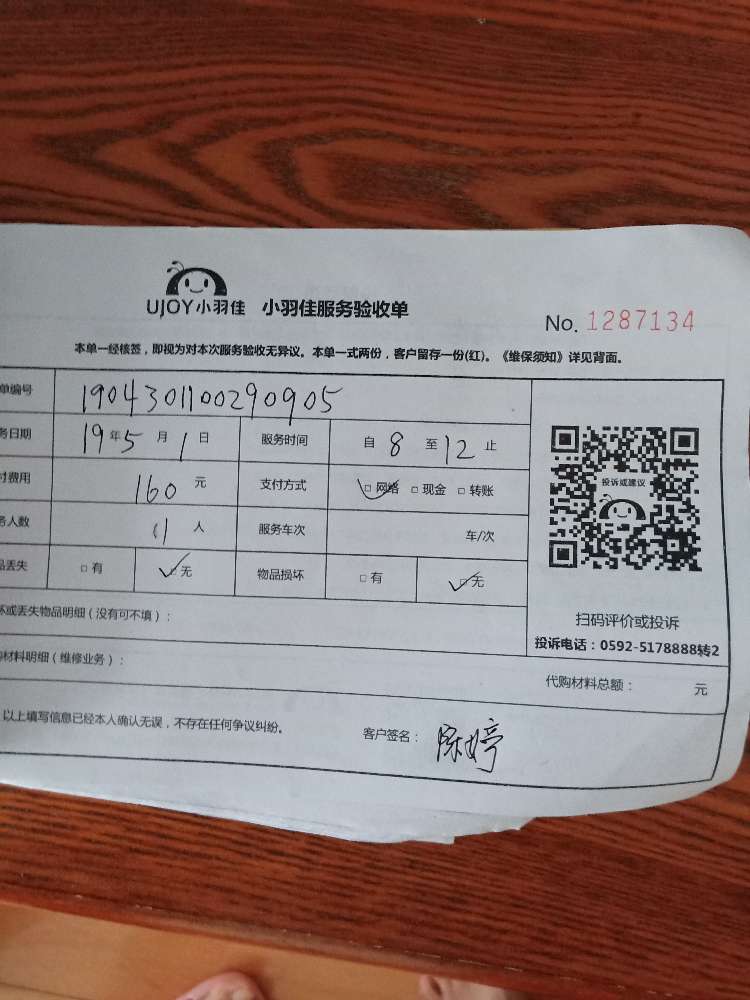 UJOY小羽佳 小羽佳服务验收单
No. 1287134
本单一经核签，即视为对本次服务验收无异议。本单一式两份，客户留存一份(红)。《维保须知》详见背面。
单编号 190430110029090​5
务日期 19年5月1日 服务时间 自8至12止
付费用 160元 支付方式 □网络 □现金 □转账
务人数 1人 服务车次 车/次
品丢失 □有 □无 物品损坏 □有 □无
投诉或建议
扫码评价或投诉
投诉电话：0592-5178888转2
坏或丢失物品明细（没有可不填）：
购材料明细（维修业务）： 代购材料总额： 元
以上填写信息已经本人确认无误，不存在任何争议纠纷。 客户签名：陈婷